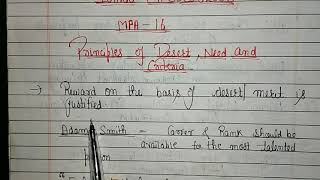 MPA-16
Principles of Desert, Need and
Criteria
→ Reward on the basis of desert/merit is
justified.
Adam Smith - Career & Rank should be
available for the most talented